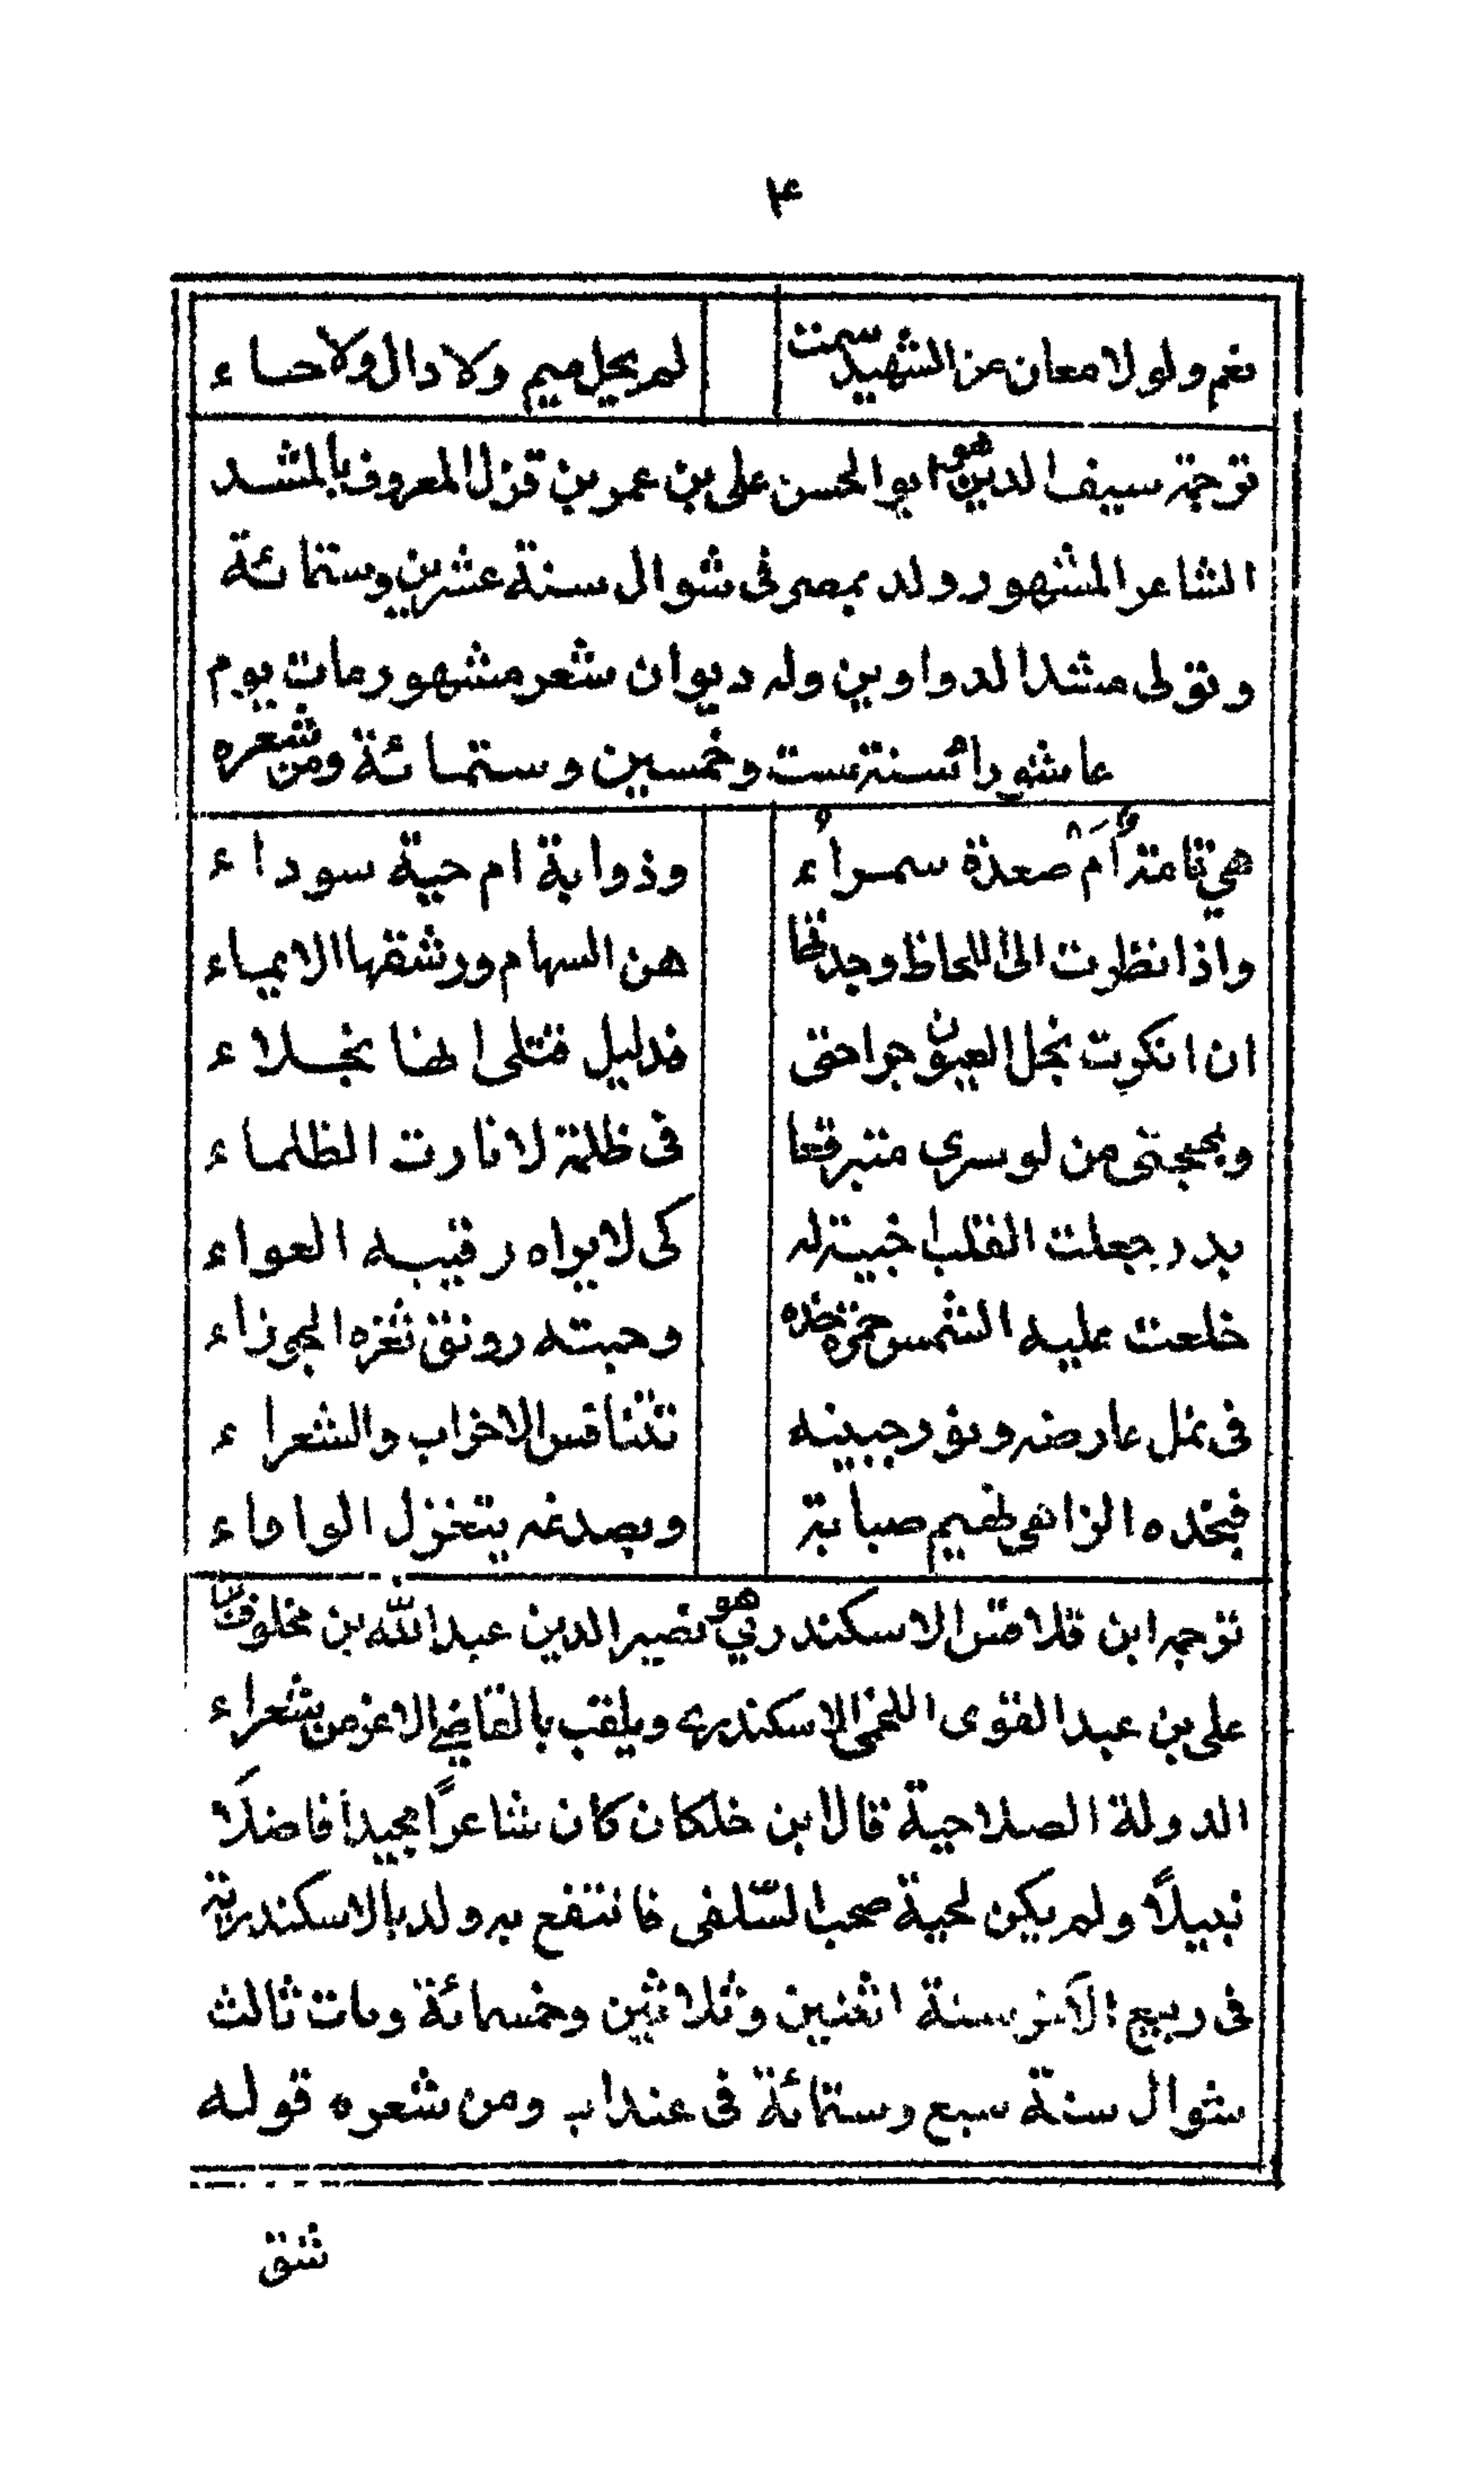 ۴
نعم ولولا معان عن الشهيد سمت لم يحل ميم ولا دال ولا حاء
ترجمة سيف الدين هو ابو الحسن على بن عمر بن قزل المعروف بالمشد
الشاعر المشهور ولد بمصر فى شوال سنة عشرين وستمائة
وتولى مشد الدواوين وله ديوان شعر مشهور مات يوم
عاشوراء سنة ست وخمسين وستمائة ومن شعره
هي قامة أم صعدة سمراء وذوابة ام حية سوداء
واذا نظرت الى اللحاظ وجدتها هن السهام ورشقها الايماء
ان انكرت نجل العيون جراحتى فدليل قتلى انها نجلاء
وبمهجتى من لو سرى متبرقعا فى ظلمة لانارت الظلماء
بدر جعلت القلب اخبية له كى لا يراه رقيبه العواء
خلعت عليه الشمس حمرة خده وحبته رونق ثغره الجوزاء
فى نمل عارضه ونور جبينه تتنافس الاحزاب والشعراء
فبخده الزاهى نهيم صبابة وبصدغه يتغزل الواواء
ترجمه ابن قلاقس الاسكندري هو نصير الدين عبد الله بن مخلوف بن
على بن عبد القوى اللخمى الاسكندرى ويلقب بالقاضي الاعز من شعراء
الدولة الصلاحية قال ابن خلكان كان شاعرًا مجيداً فاضلًا
نبيلًا ولم يكن لحية صحب السّلفى فانتفع به ولد بالاسكندرية
فى ربيع الآخر سنة اثنين وثلاثين وخمسمائة ومات ثالث
شوال سنة سبع وستمائة فى عنداب ومن شعره قوله
شق